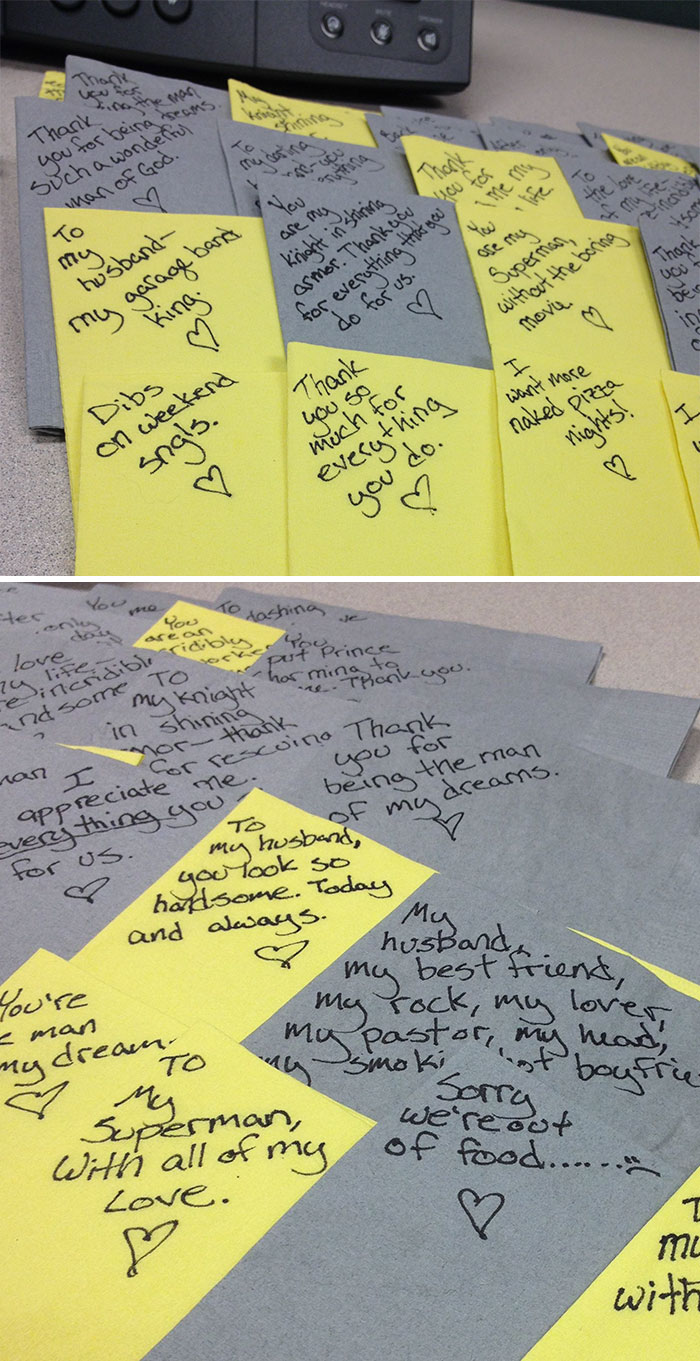 HEADSET
MUTE
SPEAKER
Thank
you for
the man
Thank
you for being
such a wonderful
man of God.
My
knight
shining
To
my boring
Thank
you for
me my
life
To
the love
of my life-
To
my
husband-
my garage band
king.
You
are my
knight in shining
armor. Thank you
for everything that you
do for us.
You
are my
Superman,
without the boring
movie.
Thank
you
Dibs
on weekend
sngls.
Thank
you so
much for
everything
you do.
I
want more
naked pizza
nights!
I
You me
only
day
You
are an
To
dashing
You
put Prince
to
Thank you.
love
my life-
incredibly
To
my knight
in shining
thank
for rescuing
me.
Thank
you for
being the man
of my dreams.
man I
appreciate
everything you
for us.
To
my husband,
you look so
handsome. Today
and always.
My
husband,
my best friend,
my rock, my lover,
my pastor, my head,
my smoki
boyfrie
You're
man
my dream.
To
My
Superman,
With all of my
Love.
Sorry
we're out
of food.......
with